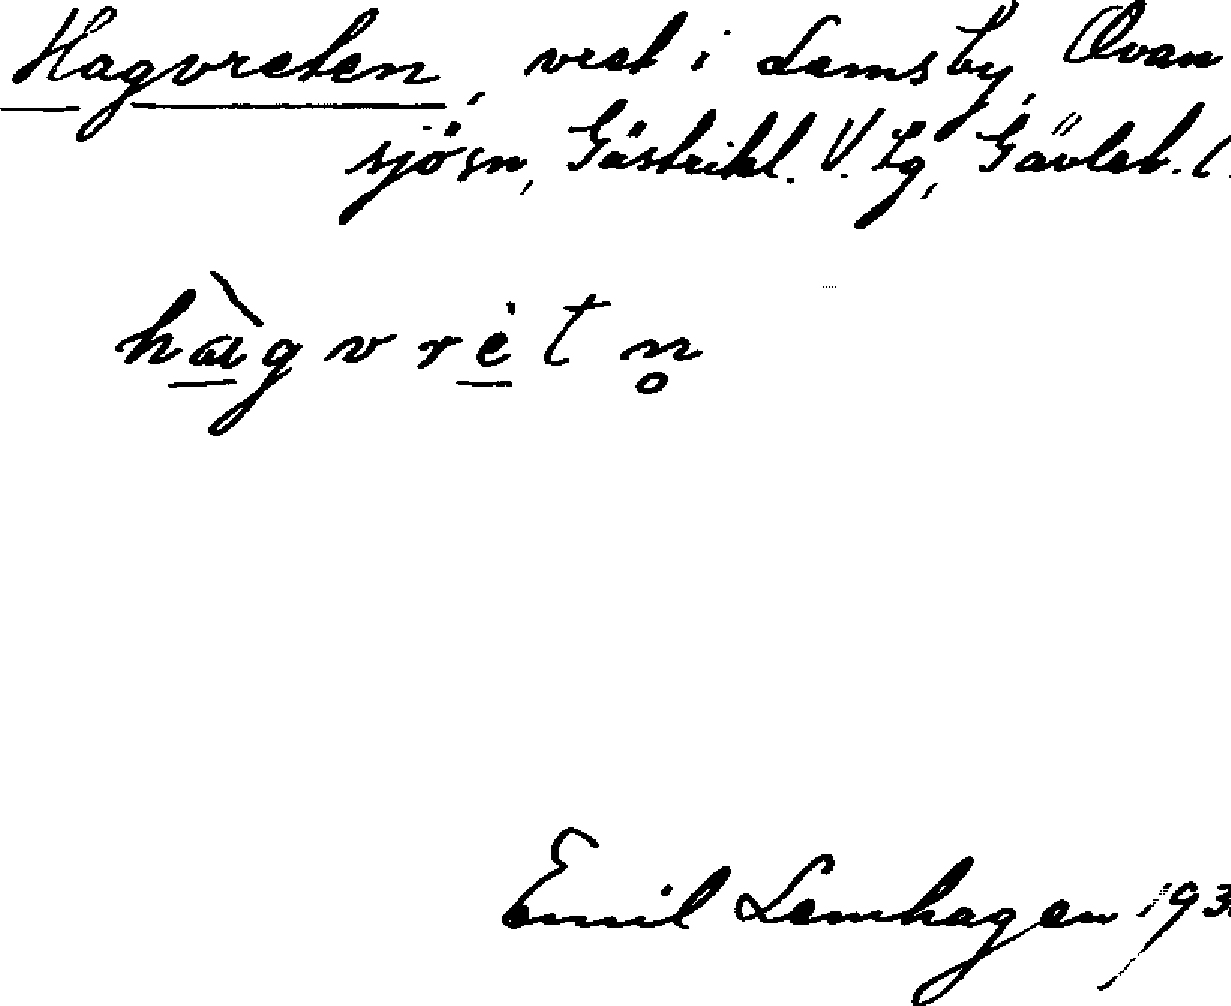 Hagvreten, vret i Lemsby, Ovan
sjösn, Gästrikl. V. Tg, Gävleb. l.
hàgvrėtn̥
Emil Lemhagen 193